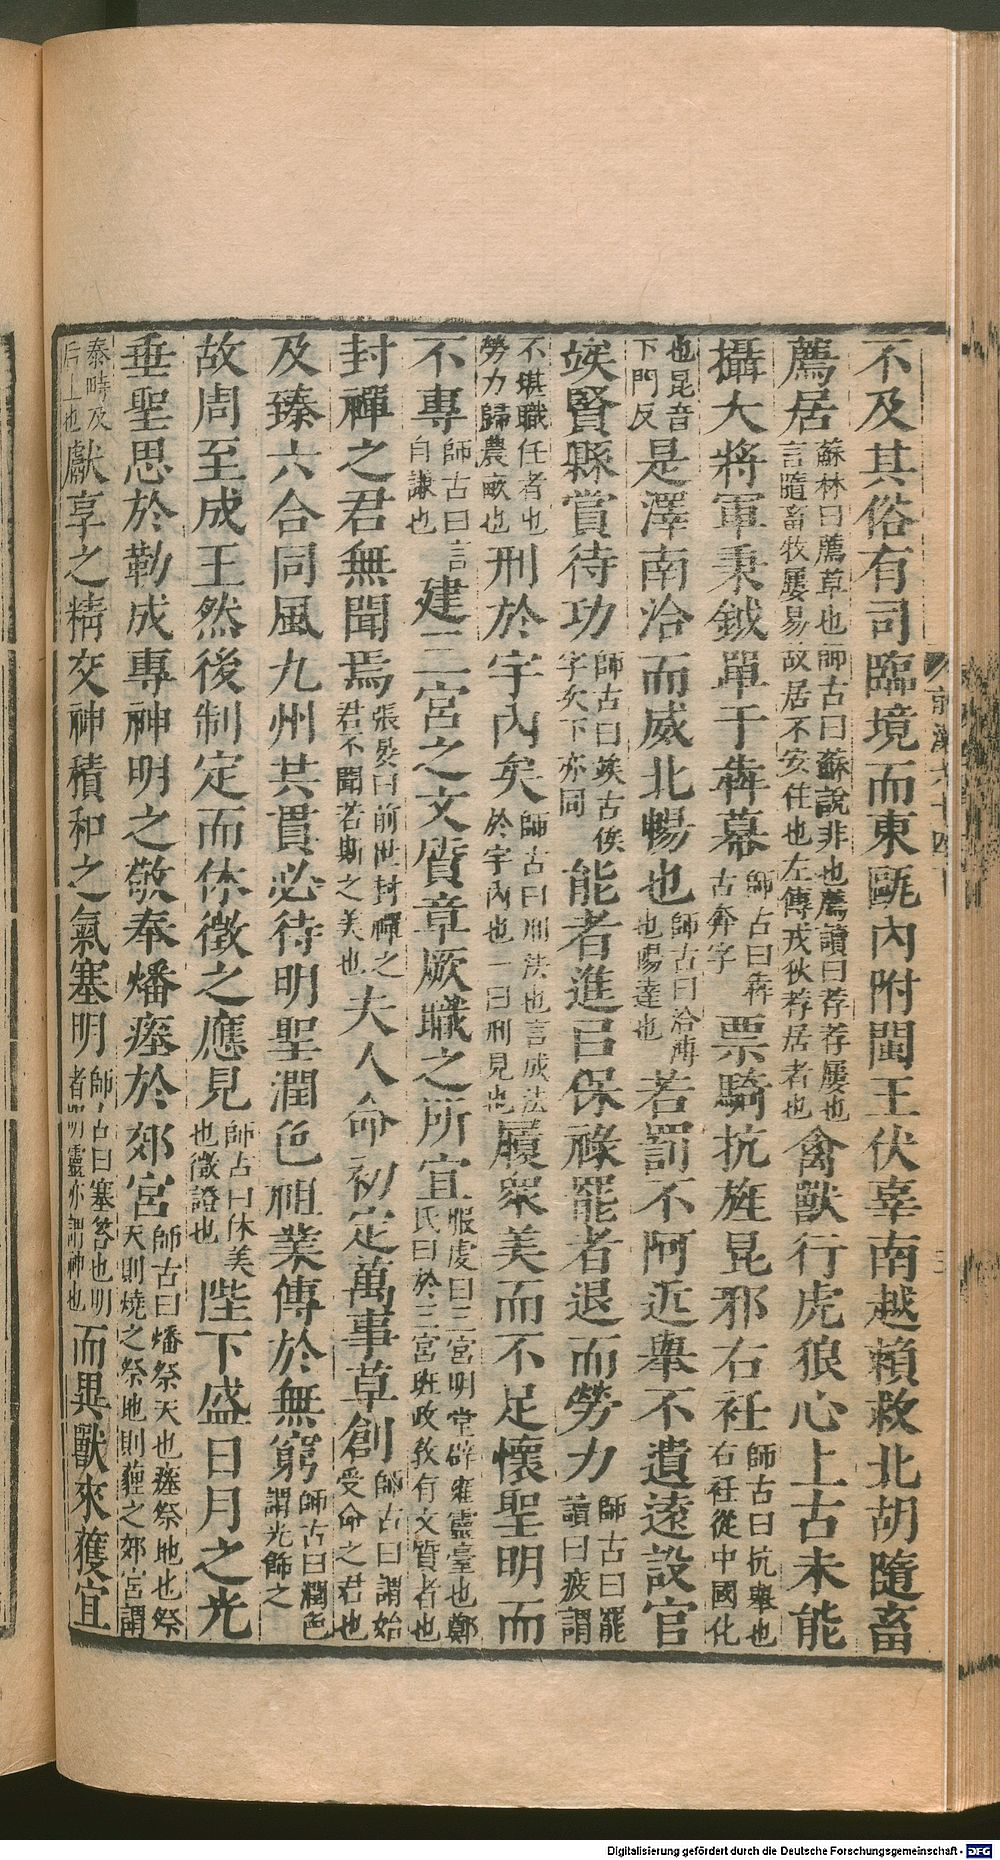 不及其俗有司臨境而東甌內附閩王伏辜南越賴救北胡隨畜
薦居蘇林曰薦草也師古曰蘇說非也薦讀曰荐荐屢也言隨畜牧屢易故居不安住也左傳戎狄荐居者也禽獸行虎狼心上古未能
攝大將軍秉鉞單于犇幕師古曰犇古奔字票騎抗旌昆邪右衽師古曰抗舉也右衽從中國化
也昆音下門反是澤南洽而威北暢也師古曰洽溥也暢達也若罰不阿近舉不遺遠設官
竢賢縣賞待功師古曰竢古俟字矣下亦同能者進㠯保祿罷者退而勞力師古曰罷讀曰疲謂
不堪職任者也勞力歸農畝也刑於宇內矣師古曰刑法也言成法於宇內也一曰刑見也履衆美而不足懷聖明而
不專師古曰言自謙也建三宮之文質章厥職之所宜服虔曰三宮明堂辟雍靈臺也鄭氏曰於三宮班政敎有文質者也
封禪之君無聞焉張晏曰前世封禪之君不聞若斯之美也夫人命初定萬事草創師古曰謂始受命之君也
及臻六合同風九州共貫必待明聖潤色祖業傳於無窮師古曰潤色謂光飾之
故周至成王然後制定而休徵之應見師古曰休美也徵證也陛下盛日月之光
垂聖思於勒成專神明之敬奉燔瘞於郊宮師古曰燔祭天也瘞祭地也祭天則燒之祭地則薶之郊宮謂
泰畤及后土也獻享之精交神積和之氣塞明師古曰塞荅也明者明靈亦謂神也而異獸來獲宜
前漢六十四下
Digitalisierung gefördert durch die Deutsche Forschungsgemeinschaft - DFG